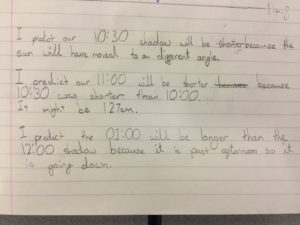 I predict our 10:30 shadow will be shorter because the
sun will have moved to a different angle.
I predict our 11:00 will be shorter because
10:30 was shorter than 10:00.
It might be 127cm.
I predict the 01:00 will be longer than the
12:00 shadow because it is past afternoon so it
is going down.